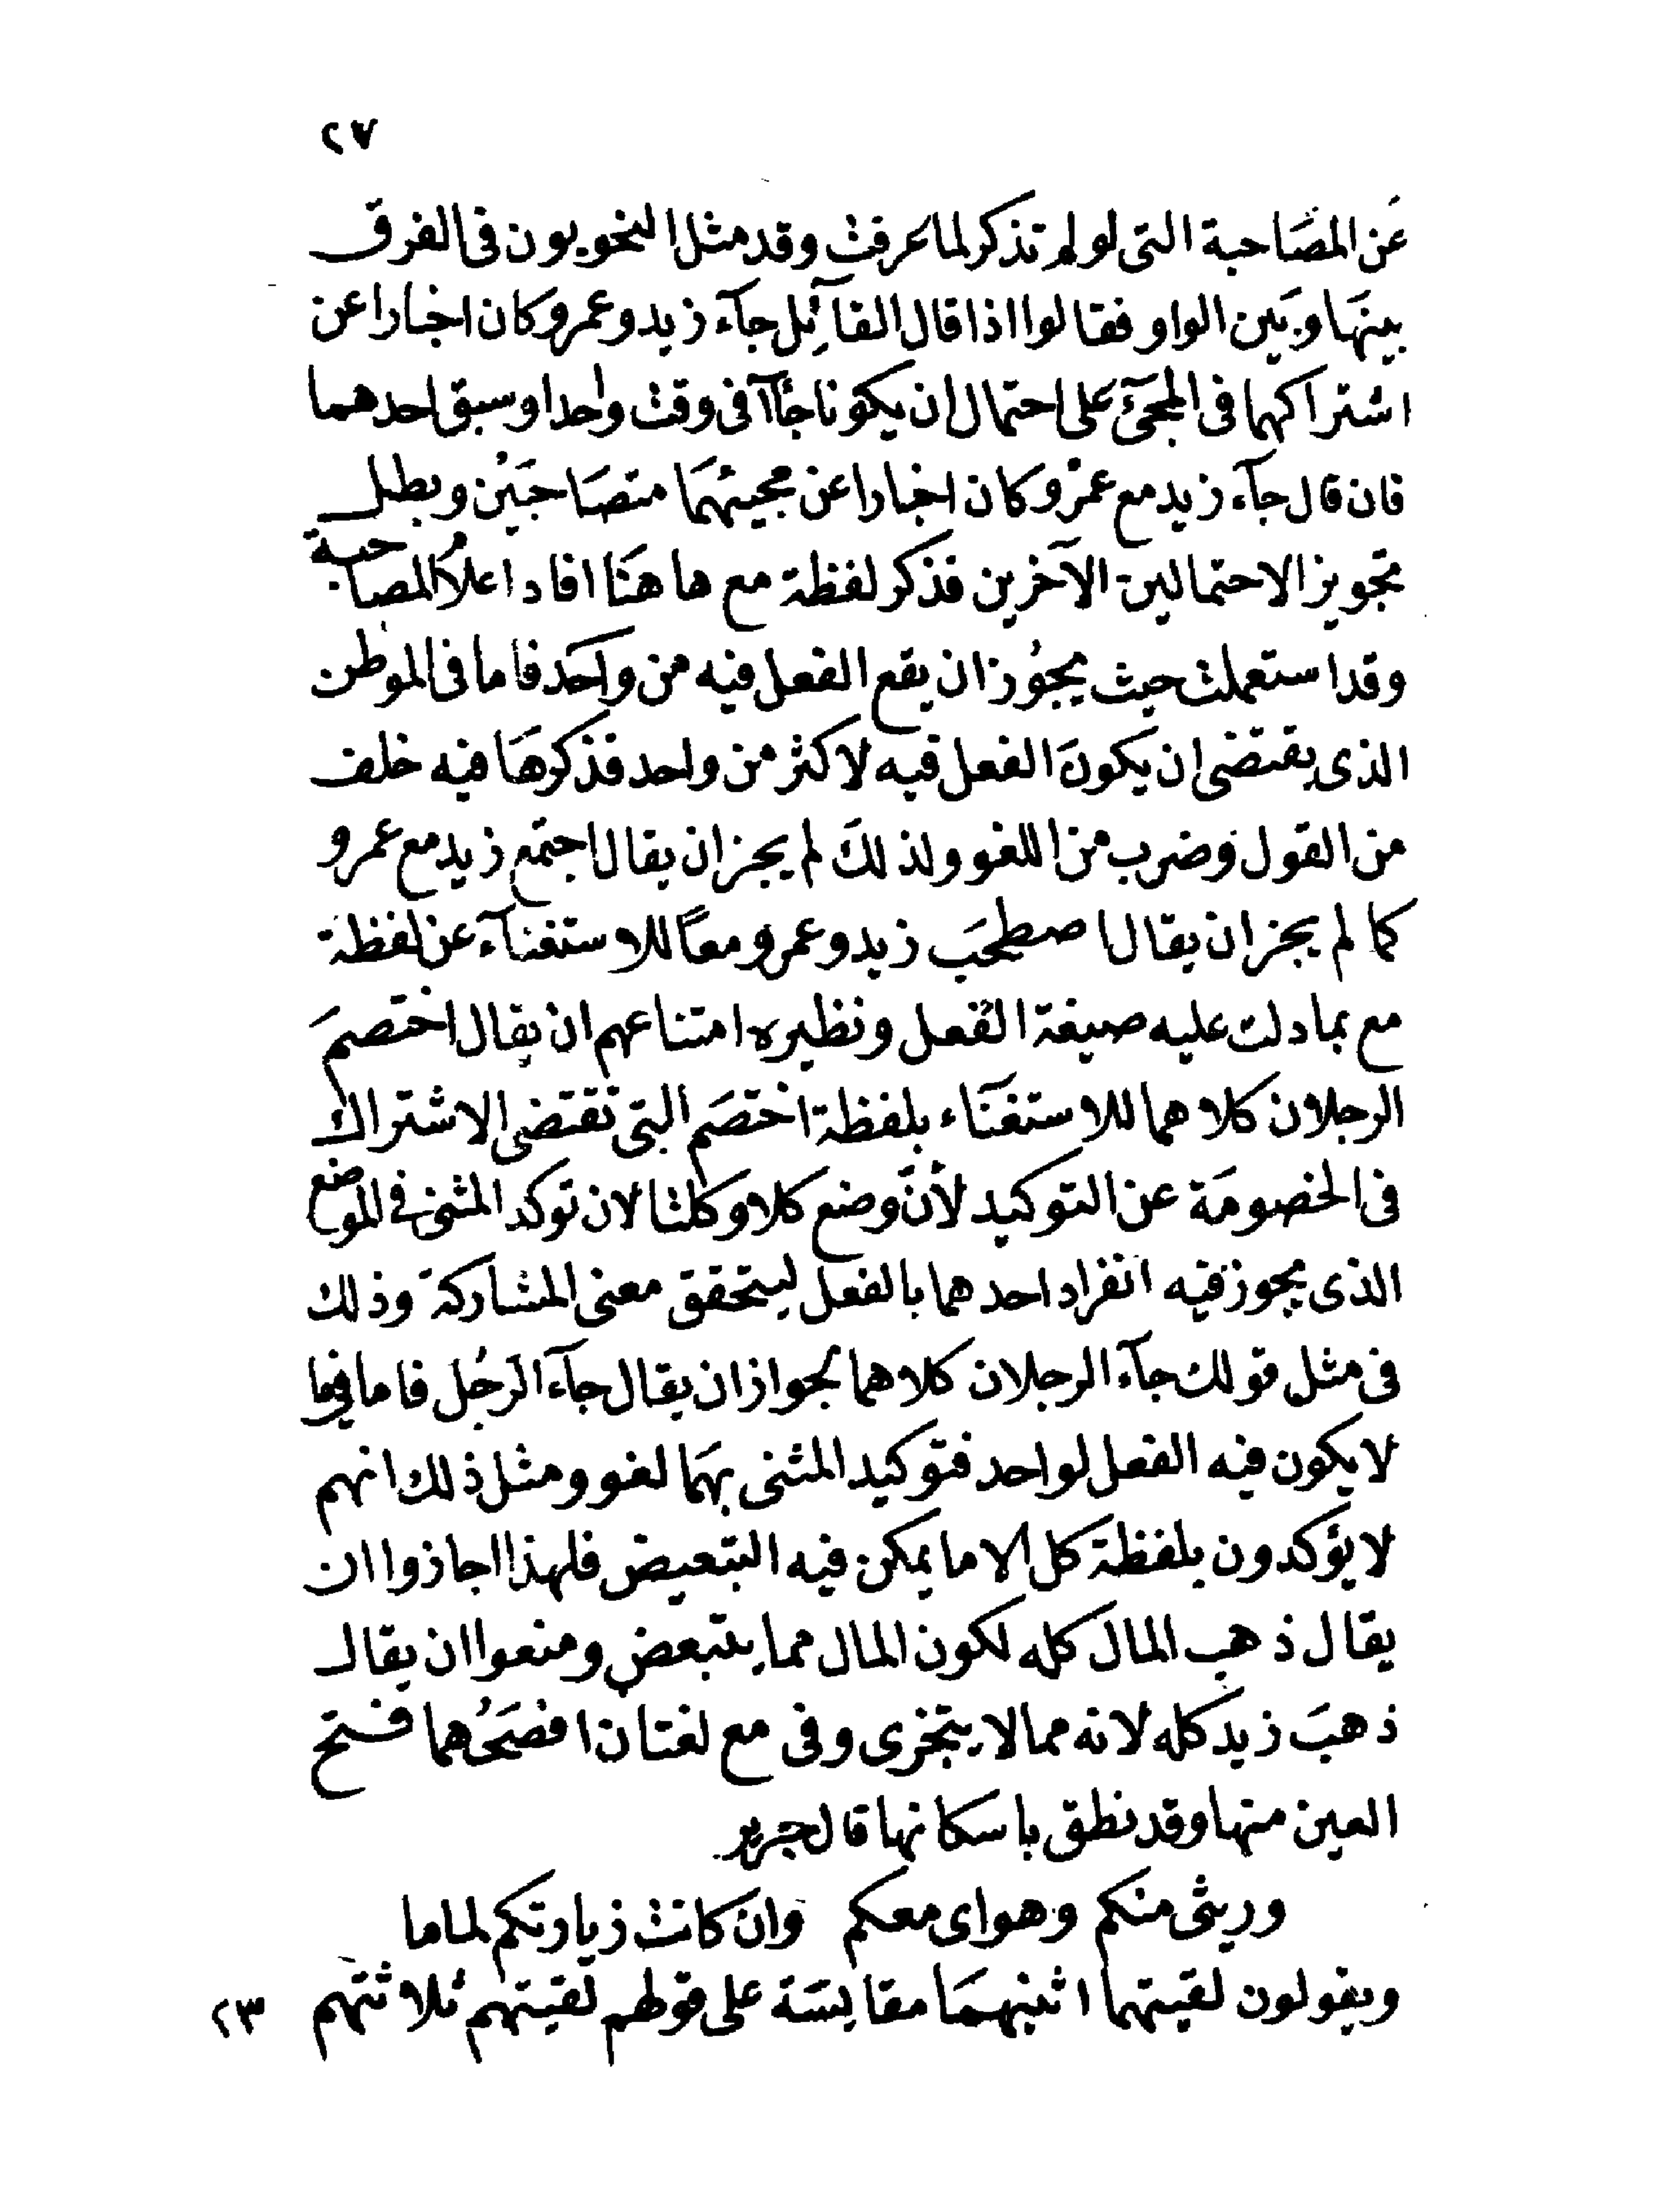 ٢٧
عَن المصَاحبة التى لولم تذكر لما عرفت وقد مثل النحويون فى الفرق
بينهَا وبَين الواو فقالوا اذا قال القآئِل جآء زيد وعمرو كان اخبارا عن
اشتراكهما فى المجئ عَلى احتمال ان يكونا جآا فى وقت واحد او سبق احدهما
فان قال جآء زيد مع عمرْو كان اخبارا عن مجيئهمَا متصَاحبَيْن وبطل
تجويز الاحتمالين الآخرين فذكر لفظة مع هاهنَا افاد اعلاُ المصاحبة
وقد استعملت حيث يجوُز ان يقع الفعل فيه من واحَد فاما فى الموطن
الذى يقتضى ان يكونَ الفعل فيه لاكثر من واحد فذكرهَا فيه خلف
من القول وَضرب من اللغو ولذلكَ لم يجز ان يقال اجتمع زيد مع عمرو
كما لم يجز ان يقال اصطحَب زيد وعمرو معًا للاستغنآء عن لفظة
مع بما دلت عليه صيغة الفعل ونظيره امتناعهم ان يقال اختصمَ
الرجلان كلاهما للاستغنَاء بلفظة اختصَم التى تقتضى الاشتراك
فى الخصومَة عن التوكيد لأنَّ وضع كلا وكلتا لان توكد المثنى فى الموضع
الذى يجوز فيه انفراد احدهما بالفعل ليتحقق معنى المشاركة وذلك
فى مثل قولك جآء الرجلان كلاهما لجواز ان يقال جآءَ الرجُل فاما فيما
لا يكون فيه الفعل لواحد فتوكيد المثنى بهمَا لغو ومثل ذلك انهم
لا يؤكدون بلفظة كل الا ما يمكن فيه التبعيض فلهذا اجازوا ان
يقال ذهب المال كله لكون المال مما يتبعض ومنعوا ان يقال
ذهبَ زيد كله لانه مما لا يتجزى وفى مع لغتان افصَحُهما فتح
العين منها وقد نطق باسكانها قال جرير
وريشى منكم وهواى معكم وان كانت زيارتكم لماما
ويقولون لقيتهما اثنيهمَا مقايسَة على قولهم لقيتهم ثلاثتهم ٢٣